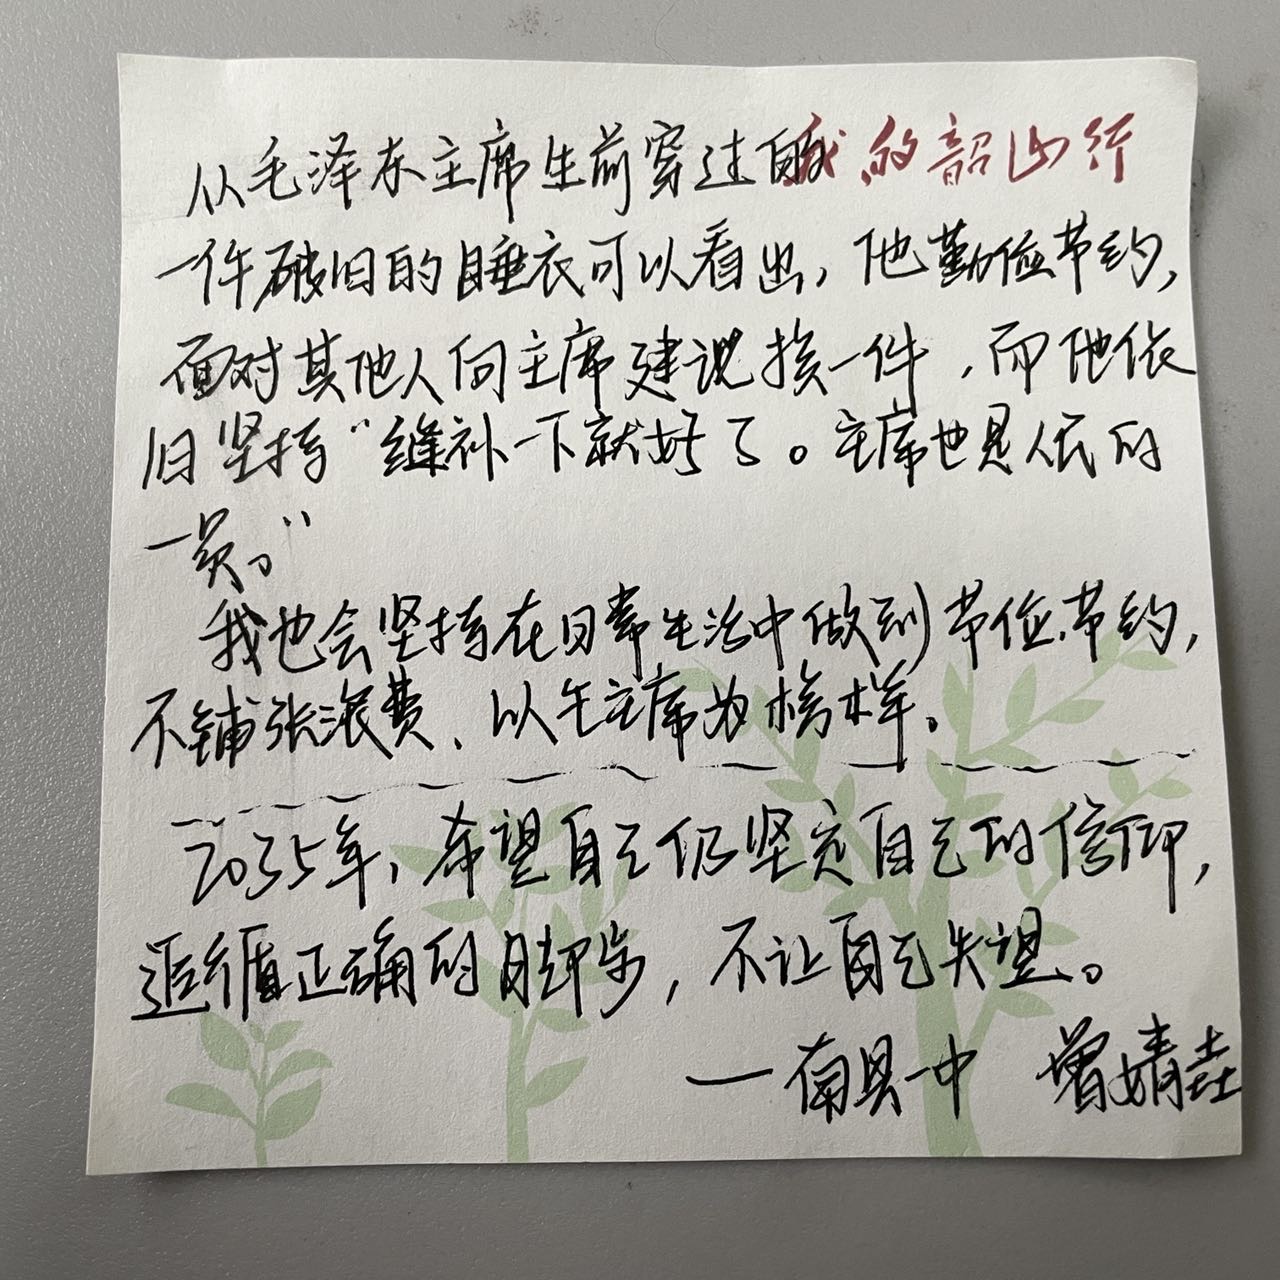 我的韶山行
从毛泽东主席生前穿过的
一件破旧的睡衣可以看出，他勤俭节约，
面对其他人向主席建议换一件，而他依
旧坚持“缝补一下就好了。主席也是人民的
一员。”
我也会坚持在日常生活中做到节俭节约，
不铺张浪费、以毛主席为榜样。
2035年，希望自己仍坚定自己的信仰，
追循正确的脚步，不让自己失望。
——南县一中 曾婧垚